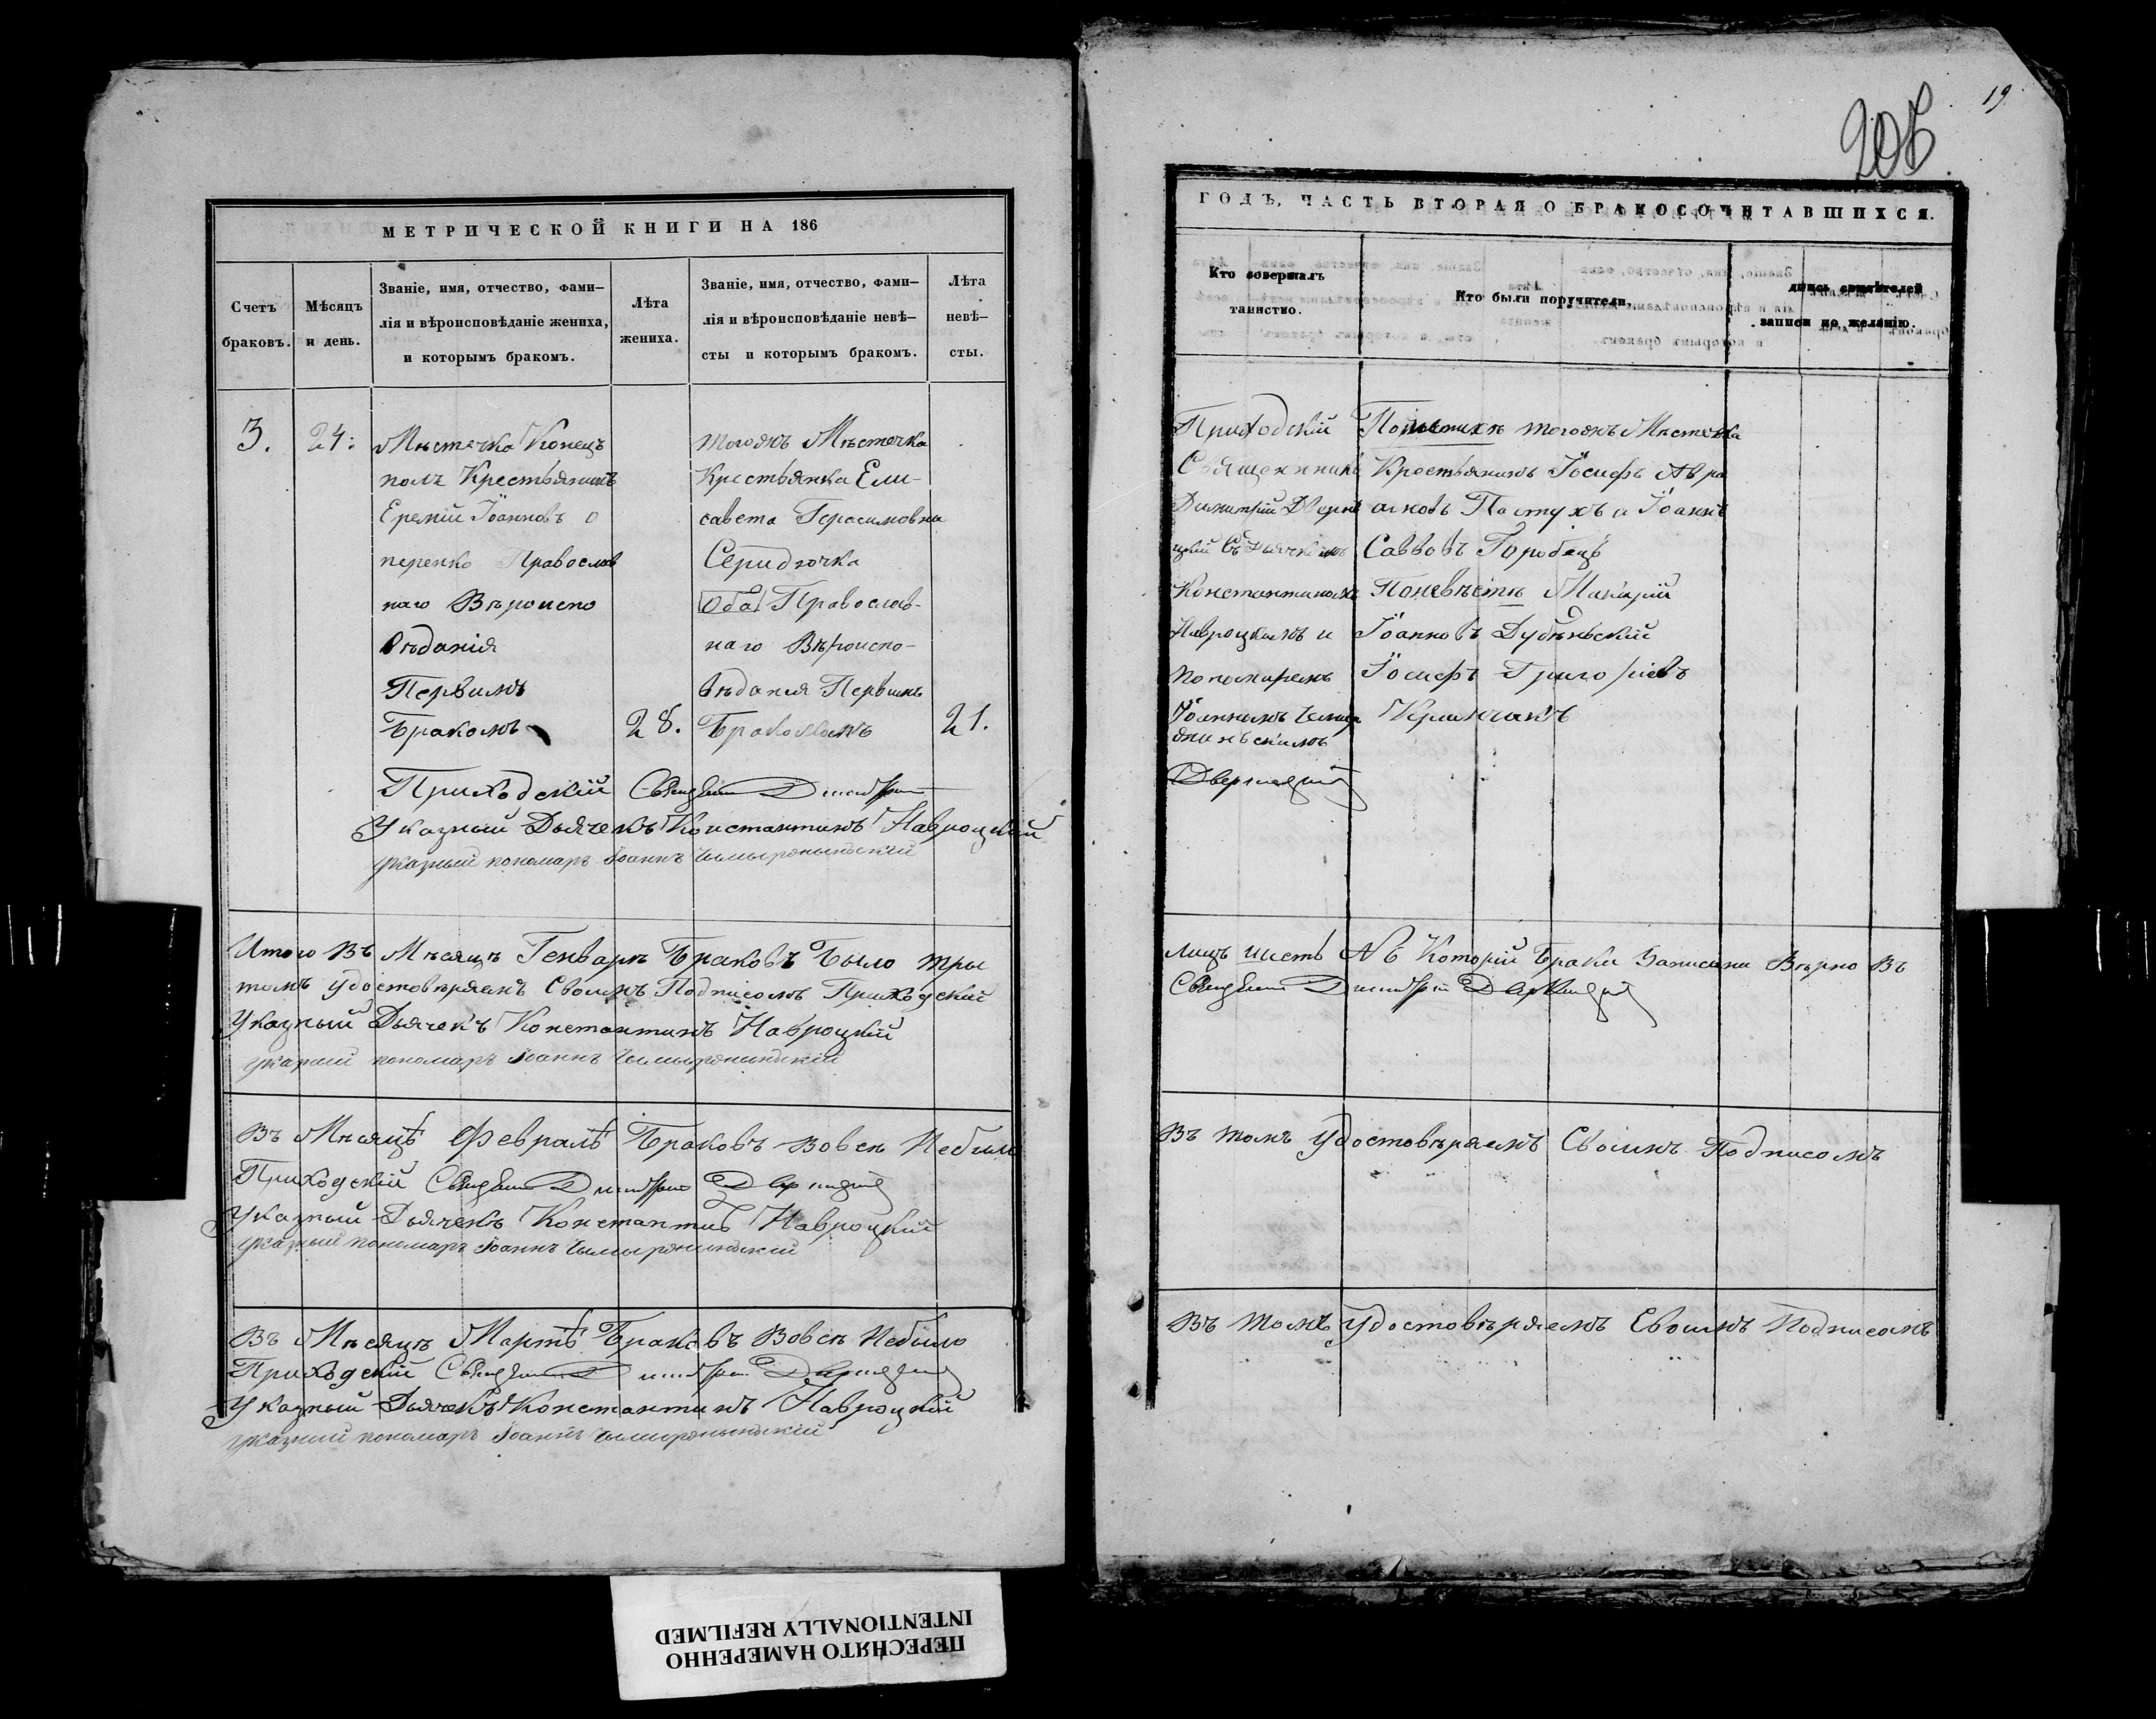 МЕТРИЧЕСКОЙ КНИГИ НА 186
Счетъ браковъ.
Мѣсяцъ и день.
Званіе, имя, отчество, фами-
лія и вѣроисповѣданіе жениха,
и которымъ бракомъ.
Лѣта жениха.
Званіе, имя, отчество, фами-
лія и вѣроисповѣданіе невѣ-
сты и которымъ бракомъ.
Лѣта невѣ-
сты.
3.
24:
Мѣстечка Конецъ
полъ Крестьянинъ
Еремій Іоанновъ О
перенко Православ
наго Вѣроиспо
вѣданія
Первимъ
Бракомъ
28.
тогожъ Мѣстечка
Крестьянка Ели-
савета Герасимовна
Середючка
Оба Православ-
наго Вѣроиспо-
вѣданія Первимъ
Бракомъ
21.
Приходскій Священникъ Димитрій
Указный Дьячекъ Константинъ Навроцкій
указный пономаръ Іоаннъ
Итого Въ Мѣсяцѣ Генварѣ Браковъ Было три
томъ удостовѣряемъ Своимъ Подписомъ Приходскій
Указный Дьячекъ Константинъ Навроцкій
указный пономаръ Іоаннъ
Въ Мѣсяцѣ Февралѣ Браковъ Вовсѣ Небило
Приходскій Священникъ Димитрій Дверницкій
Указный Дьячекъ Константинъ Навроцкій
указный пономаръ Іоаннъ
Въ Мѣсяцѣ Мартѣ Браковъ Вовсѣ Небило
Приходскій Священникъ Димитрій Дверницкій
Указный Дьячекъ Константинъ Навроцкій
указный пономаръ Іоаннъ
19
205
ГОДЪ, ЧАСТЬ ВТОРАЯ О БРАКОСОЧЕТАВШИХСЯ.
Кто совершалъ
таинство.
Кто были поручители.
записи по желанію.
Приходскій
Священникъ
Димитрій Дверни
цкій Съ Дьячкомъ
Константиномъ
Навроцкимъ и
Пономаремъ
Іоанномъ
Дверницкій
По женихѣ тогожъ Мѣстечка
Крестьянинъ Іосифъ Авра
амовъ Пастухъ и Іоаннъ
Савовъ Горобецъ
Поневѣстѣ Макарій
Іоанновъ Дубѣньскій
Іосифъ Григоріевъ
лицъ шесть Которій Браки Записани Вѣрно Въ
Священникъ Димитрій Дверницкій
Въ томъ Удостовѣряемъ Своимъ Подписомъ
Въ томъ Удостовѣряемъ Своимъ Подписомъ
ПЕРЕСНЯТО НАМЕРЕННО
INTENTIONALLY REFILMED